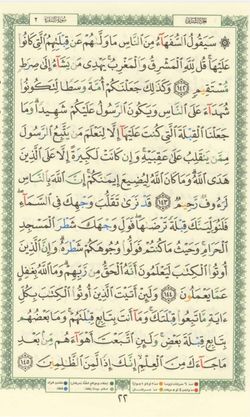 سَيَقُولُ ٱلسُّفَهَآءُ مِنَ ٱلنَّاسِ مَا وَلَّىٰهُمْ عَن قِبْلَتِهِمُ ٱلَّتِى كَانُوا۟
عَلَيْهَا قُل لِّلَّهِ ٱلْمَشْرِقُ وَٱلْمَغْرِبُ يَهْدِى مَن يَشَآءُ إِلَىٰ صِرَٰطٍ
مُّسْتَقِيمٍ ١٤٢ وَكَذَٰلِكَ جَعَلْنَٰكُمْ أُمَّةً وَسَطًا لِّتَكُونُوا۟
شُهَدَآءَ عَلَى ٱلنَّاسِ وَيَكُونَ ٱلرَّسُولُ عَلَيْكُمْ شَهِيدًا وَمَا
جَعَلْنَا ٱلْقِبْلَةَ ٱلَّتِى كُنتَ عَلَيْهَآ إِلَّا لِنَعْلَمَ مَن يَتَّبِعُ ٱلرَّسُولَ
مِمَّن يَنقَلِبُ عَلَىٰ عَقِبَيْهِ وَإِن كَانَتْ لَكَبِيرَةً إِلَّا عَلَى ٱلَّذِينَ
هَدَى ٱللَّهُ وَمَا كَانَ ٱللَّهُ لِيُضِيعَ إِيمَٰنَكُمْ إِنَّ ٱللَّهَ بِٱلنَّاسِ
لَرَءُوفٌ رَّحِيمٌ ١٤٣ قَدْ نَرَىٰ تَقَلُّبَ وَجْهِكَ فِى ٱلسَّمَآءِ
فَلَنُوَلِّيَنَّكَ قِبْلَةً تَرْضَىٰهَا فَوَلِّ وَجْهَكَ شَطْرَ ٱلْمَسْجِدِ
ٱلْحَرَامِ وَحَيْثُ مَا كُنتُمْ فَوَلُّوا۟ وُجُوهَكُمْ شَطْرَهُۥ وَإِنَّ ٱلَّذِينَ
أُوتُوا۟ ٱلْكِتَٰبَ لَيَعْلَمُونَ أَنَّهُ ٱلْحَقُّ مِن رَّبِّهِمْ وَمَا ٱللَّهُ بِغَٰفِلٍ
عَمَّا يَعْمَلُونَ ١٤٤ وَلَئِنْ أَتَيْتَ ٱلَّذِينَ أُوتُوا۟ ٱلْكِتَٰبَ بِكُلِّ
ءَايَةٍ مَّا تَبِعُوا۟ قِبْلَتَكَ وَمَآ أَنتَ بِتَابِعٍ قِبْلَتَهُمْ وَمَا بَعْضُهُم
بِتَابِعٍ قِبْلَةَ بَعْضٍ وَلَئِنِ ٱتَّبَعْتَ أَهْوَآءَهُم مِّنۢ بَعْدِ
مَا جَآءَكَ مِنَ ٱلْعِلْمِ إِنَّكَ إِذًا لَّمِنَ ٱلظَّٰلِمِينَ ١٤٥
٢٢